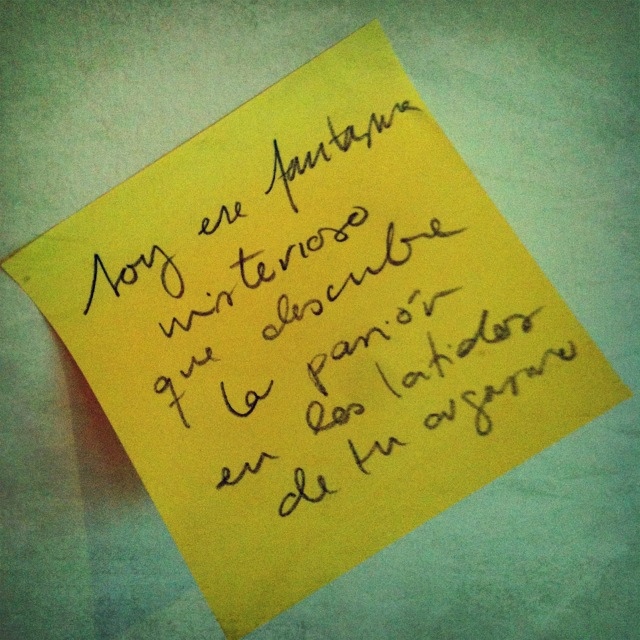 soy ese fantasma
misterioso
que descubre
la pasión
en los latidos
de tu orgasmo